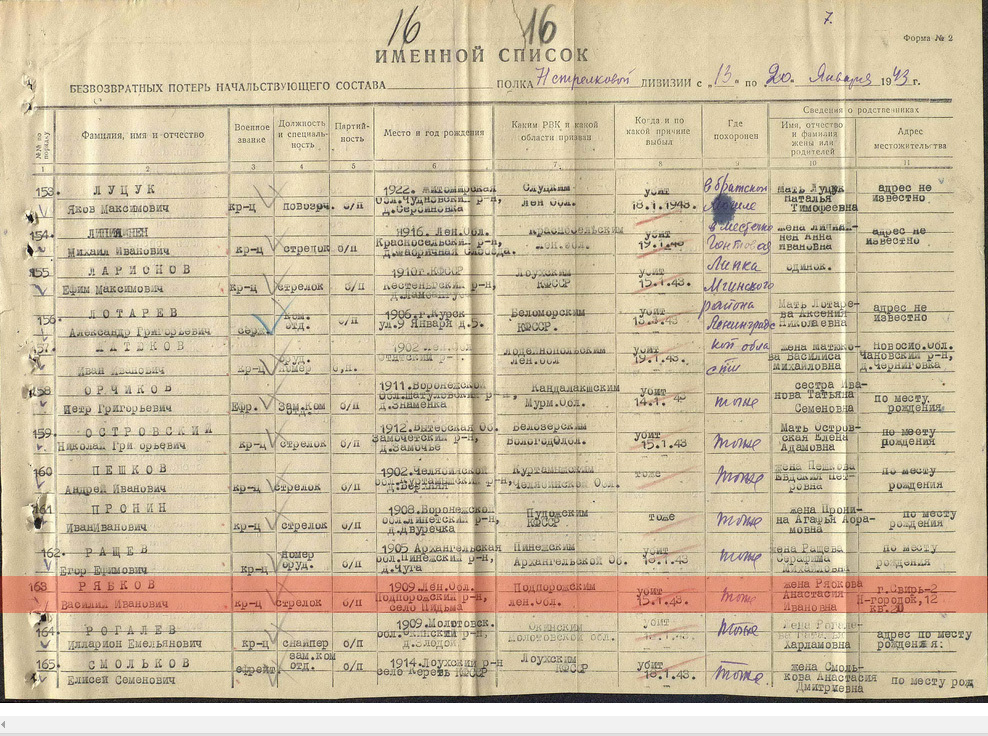 16 16 7.
Форма № 2
ИМЕННОЙ СПИСОК
БЕЗВОЗВРАТНЫХ ПОТЕРЬ НАЧАЛЬСТВУЮЩЕГО СОСТАВА ПОЛКА стрелковой ДИВИЗИИ с "13" по 20. Января 1943 г.
№№ по порядку
Фамилия, имя и отчество
Военное звание
Должность и специальность
Партийность
Место и год рождения
Каким РВК и какой области призван
Когда и по какой причине выбыл
Где похоронен
Сведения о родственниках
Имя, отчество и фамилия жены или родителей
Адрес местожительства
1 2 3 4 5 6 7 8 9 10 11
153. ЛУЦУК 1922. Житомирская Слуцким убит в братской мать Луцук адрес не
Яков Максимович кр-ц повозч. б/п обл.Чудновский р-н, Лен обл. 18.1.1943. могиле Наталья Тимофеевна известно
154. Михаил Иванович кр-ц стрелок б/п 1916. Лен.Обл. Красносельский р-н, Красносельским Лен.обл. убит 19.1.43 в местечке жена Анна Ивановна адрес не известно
155. ЛАРИОНОВ 1910г.КФССР Лоухским убит Липка одинок.
Ефим Максимович кр-ц стрелок б/п Кестеньгский р-н, КФССР 15.1.43. Мгинского
156. ЛОТАРЕВ ком. отд. б/п 1906.г.Курск Беломорским убит района Мать Лотарева Аксения адрес не
Александр Григорьевич серж. ул.9 Января д.5. КФССР. Ленинградс Николаевна известно
157. Иван Иванович кр-ц номер б.п. 1902 Лен.обл Лодейнопольским Лен.обл убит 19.1.43. кой обла сти жена Василиса Михайловна Новосиб.Обл. Чановский р-н, д.Черниговка
158 ОРЧИКОВ 1911.Воронежской Кандалакшским убит сестра Ива-
Петр Григорьевич Ефр. Зам.Ком б/п д.Знаменка Мурм.обл. 14.1.43 тоже нова Татьяна Семеновна по месту рождения
159. ОСТРОВСКИЙ 1912.Витебская об. Белозерским убит Мать Остров- по месту
Николай Григорьевич кр-ц стрелок б/п д.Замочье Вологодобл. 15.1.43 тоже ская Елена Адамовна рождения
160 ПЕШКОВ 1902.Челябинской Куртамышским тоже жена Пешкова по месту
Андрей Иванович кр-ц стрелок б/п обл.Куртамышский р-н, Челябинской Обл. тоже Евдокия Петровна рождения
161 ПРОНИН 1908.Воронежской Пудожским тоже жена Прони- по месту
ИванИванович кр-ц стрелок б/п обл.Липетский р-н, д.двуречка КФССР тоже на Агарья мовна рождения
162. РАЩЕВ номер 1905 Архангельская Пинежским убит жена Ращева по месту
Егор Ефимович кр-ц оруд. б/п обл.Пинежский р-н, д.Чуга Архангельской Об. 18.1.43. тоже Серафима Михайловна рождения
163 РЯБКОВ 1909.Лен.Обл. Подпорожским убит жена Рябкова г.Свирь-2
Василий Иванович кр-ц стрелок б/п Подпорожский р-н, село Пидьма Лен.обл. 15.1.43. тоже Анастасия Ивановна П-городок,12 кв.20
164. РОГАЛЕВ 1909.Молотовск. убит
Илларион Емельянович кр-ц снайпер б/п Молотовской обл тоже Харламовна адрес по месту рождения:
165. СМОЛЬКОВ зам.ком отд. 1914.Лоухский р-н Лоухским убит жена Смоль-
Елисей Семенович ефрейт. б/п село Кереть КФССР КФССР 18.1.43. тоже кова Анастасия Дмитриевна по месту рож